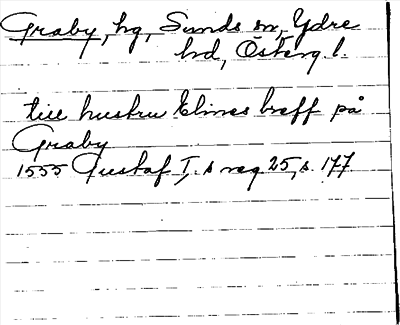 Graby, hg, Sunds sn, Ydre
hd, Österg l.
till hustru Elines breff på
Graby
1555 Gustaf I,s reg 25, s. 177.